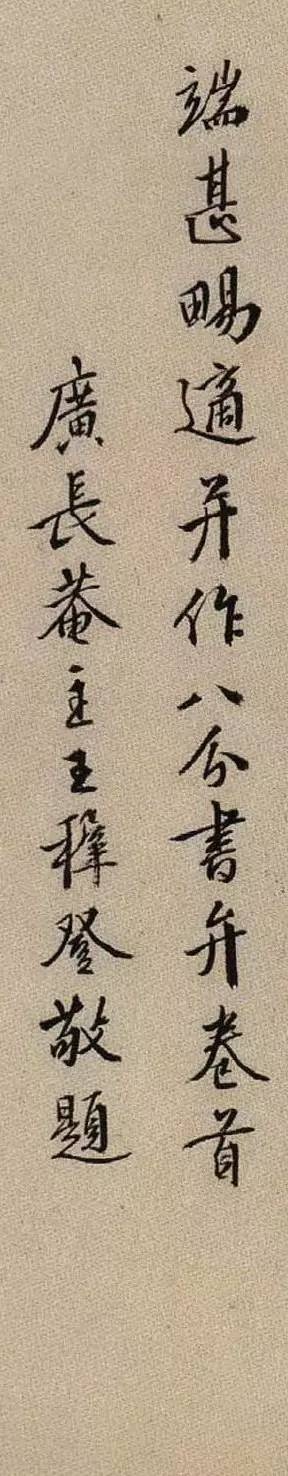 端甚暢適并作八分書弁卷首
廣長菴主王穉登敬題